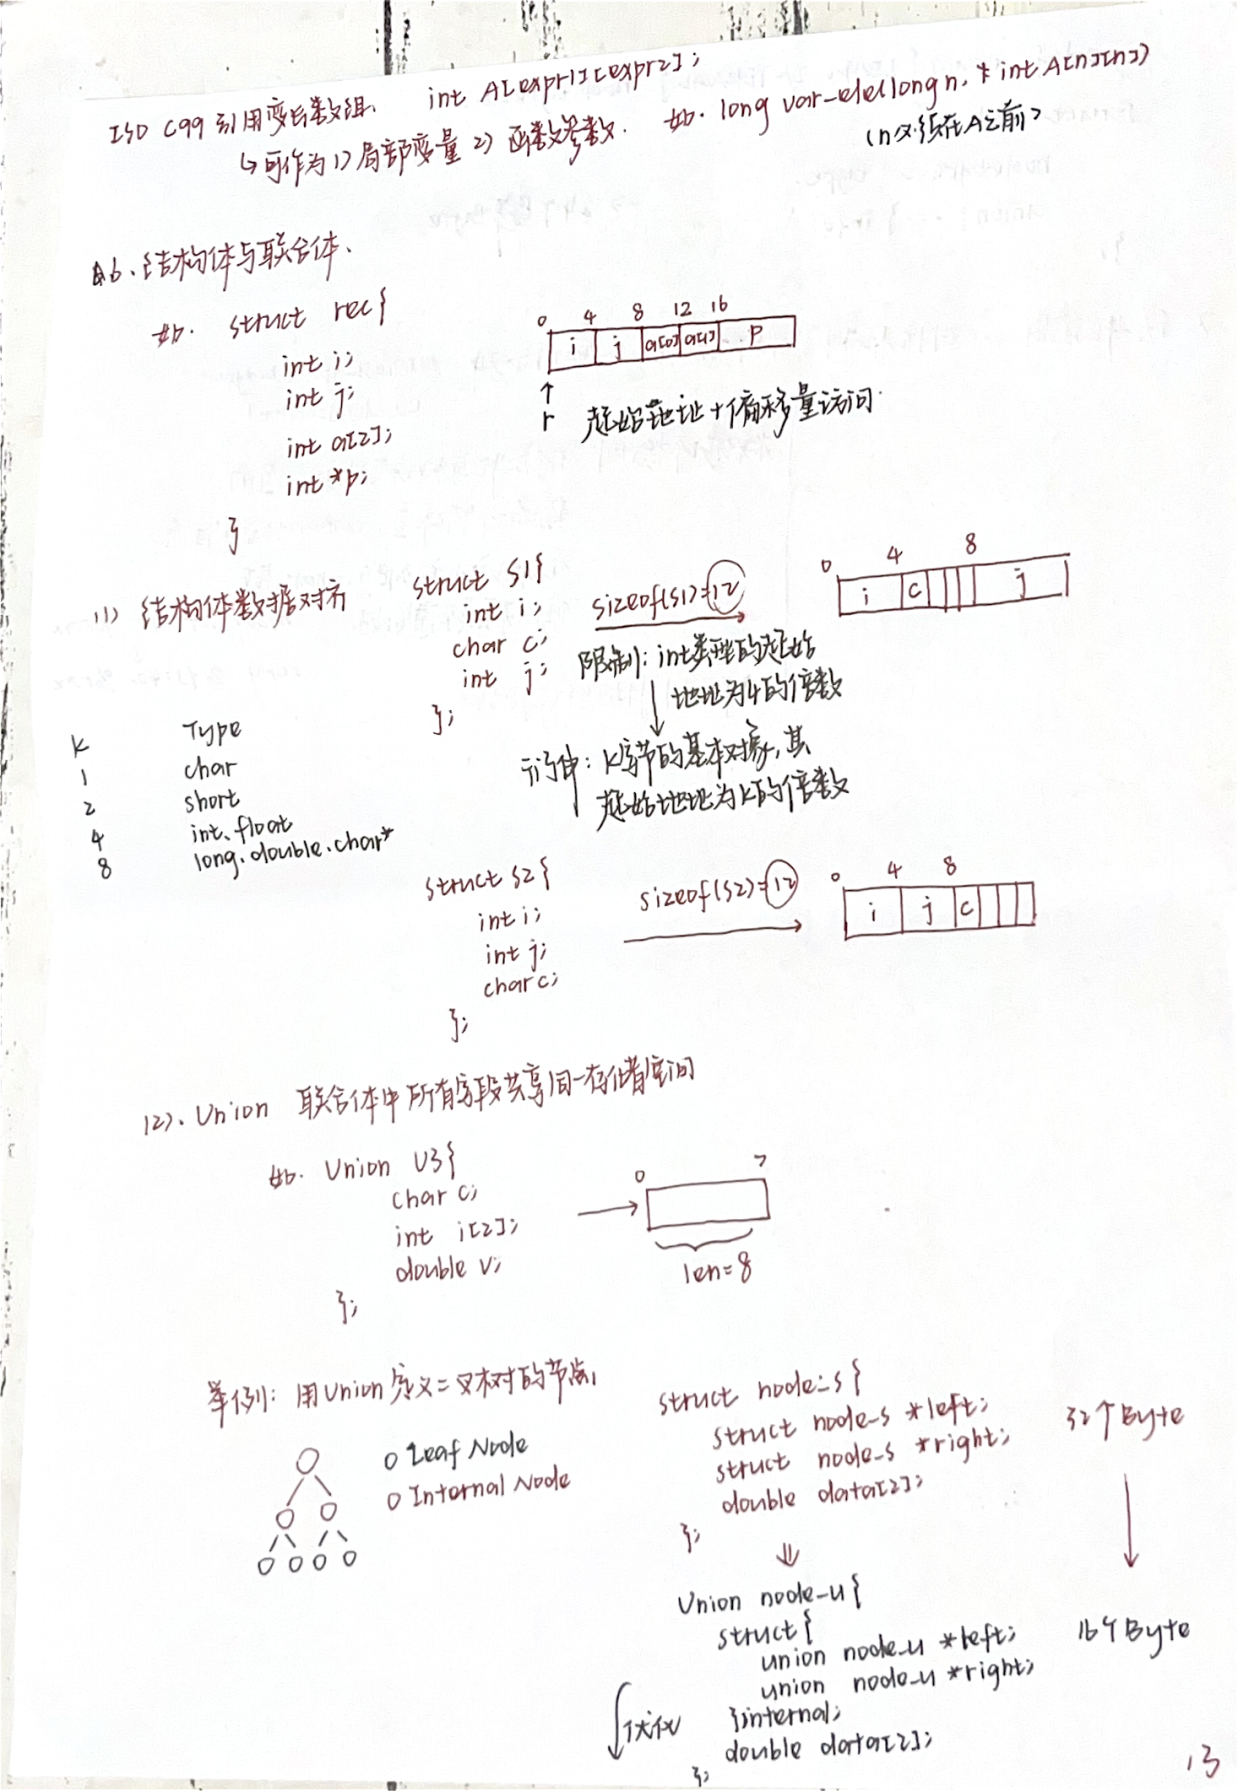 ISO C99 引用变长数组. int A[expr1][expr2];
↳可作为 1) 局部变量 2) 函数参数. 如. long var-ele(long n, int A[n][n])
(n必须在A之前)
6、结构体与联合体、
如. struct rec{
int i;
int j;
int a[2];
int *p;
}
0 4 8 12 16
i j a[0] a[1] p
↑
r 起始地址+偏移量访问.
(1) 结构体数据对齐
struct S1{
int i;
char c;
int j;
};
sizeof(S1)=12
0 4 8
i c j
限制: int类型的起始
地址为4的倍数
引伸: K字节的基本对象,其
起始地址为K的倍数
K Type
1 char
2 short
4 int、float
8 long.double.char*
struct S2{
int i;
int j;
char c;
};
sizeof(S2)=12
0 4 8
i j c
(2)、Union 联合体中所有字段共享同一存储空间
如. Union U3{
char c;
int i[2];
double v;
};
0 7
len=8
举例: 用Union定义二叉树的节点,
O Leaf Node
O Internal Node
struct node-s{
struct node-s *left;
struct node-s *right;
double data[2];
};
32个Byte
⇓
Union node-u{
struct{
union node-u *left;
union node-u *right;
}internal;
double data[2];
};
16个Byte
优化
13